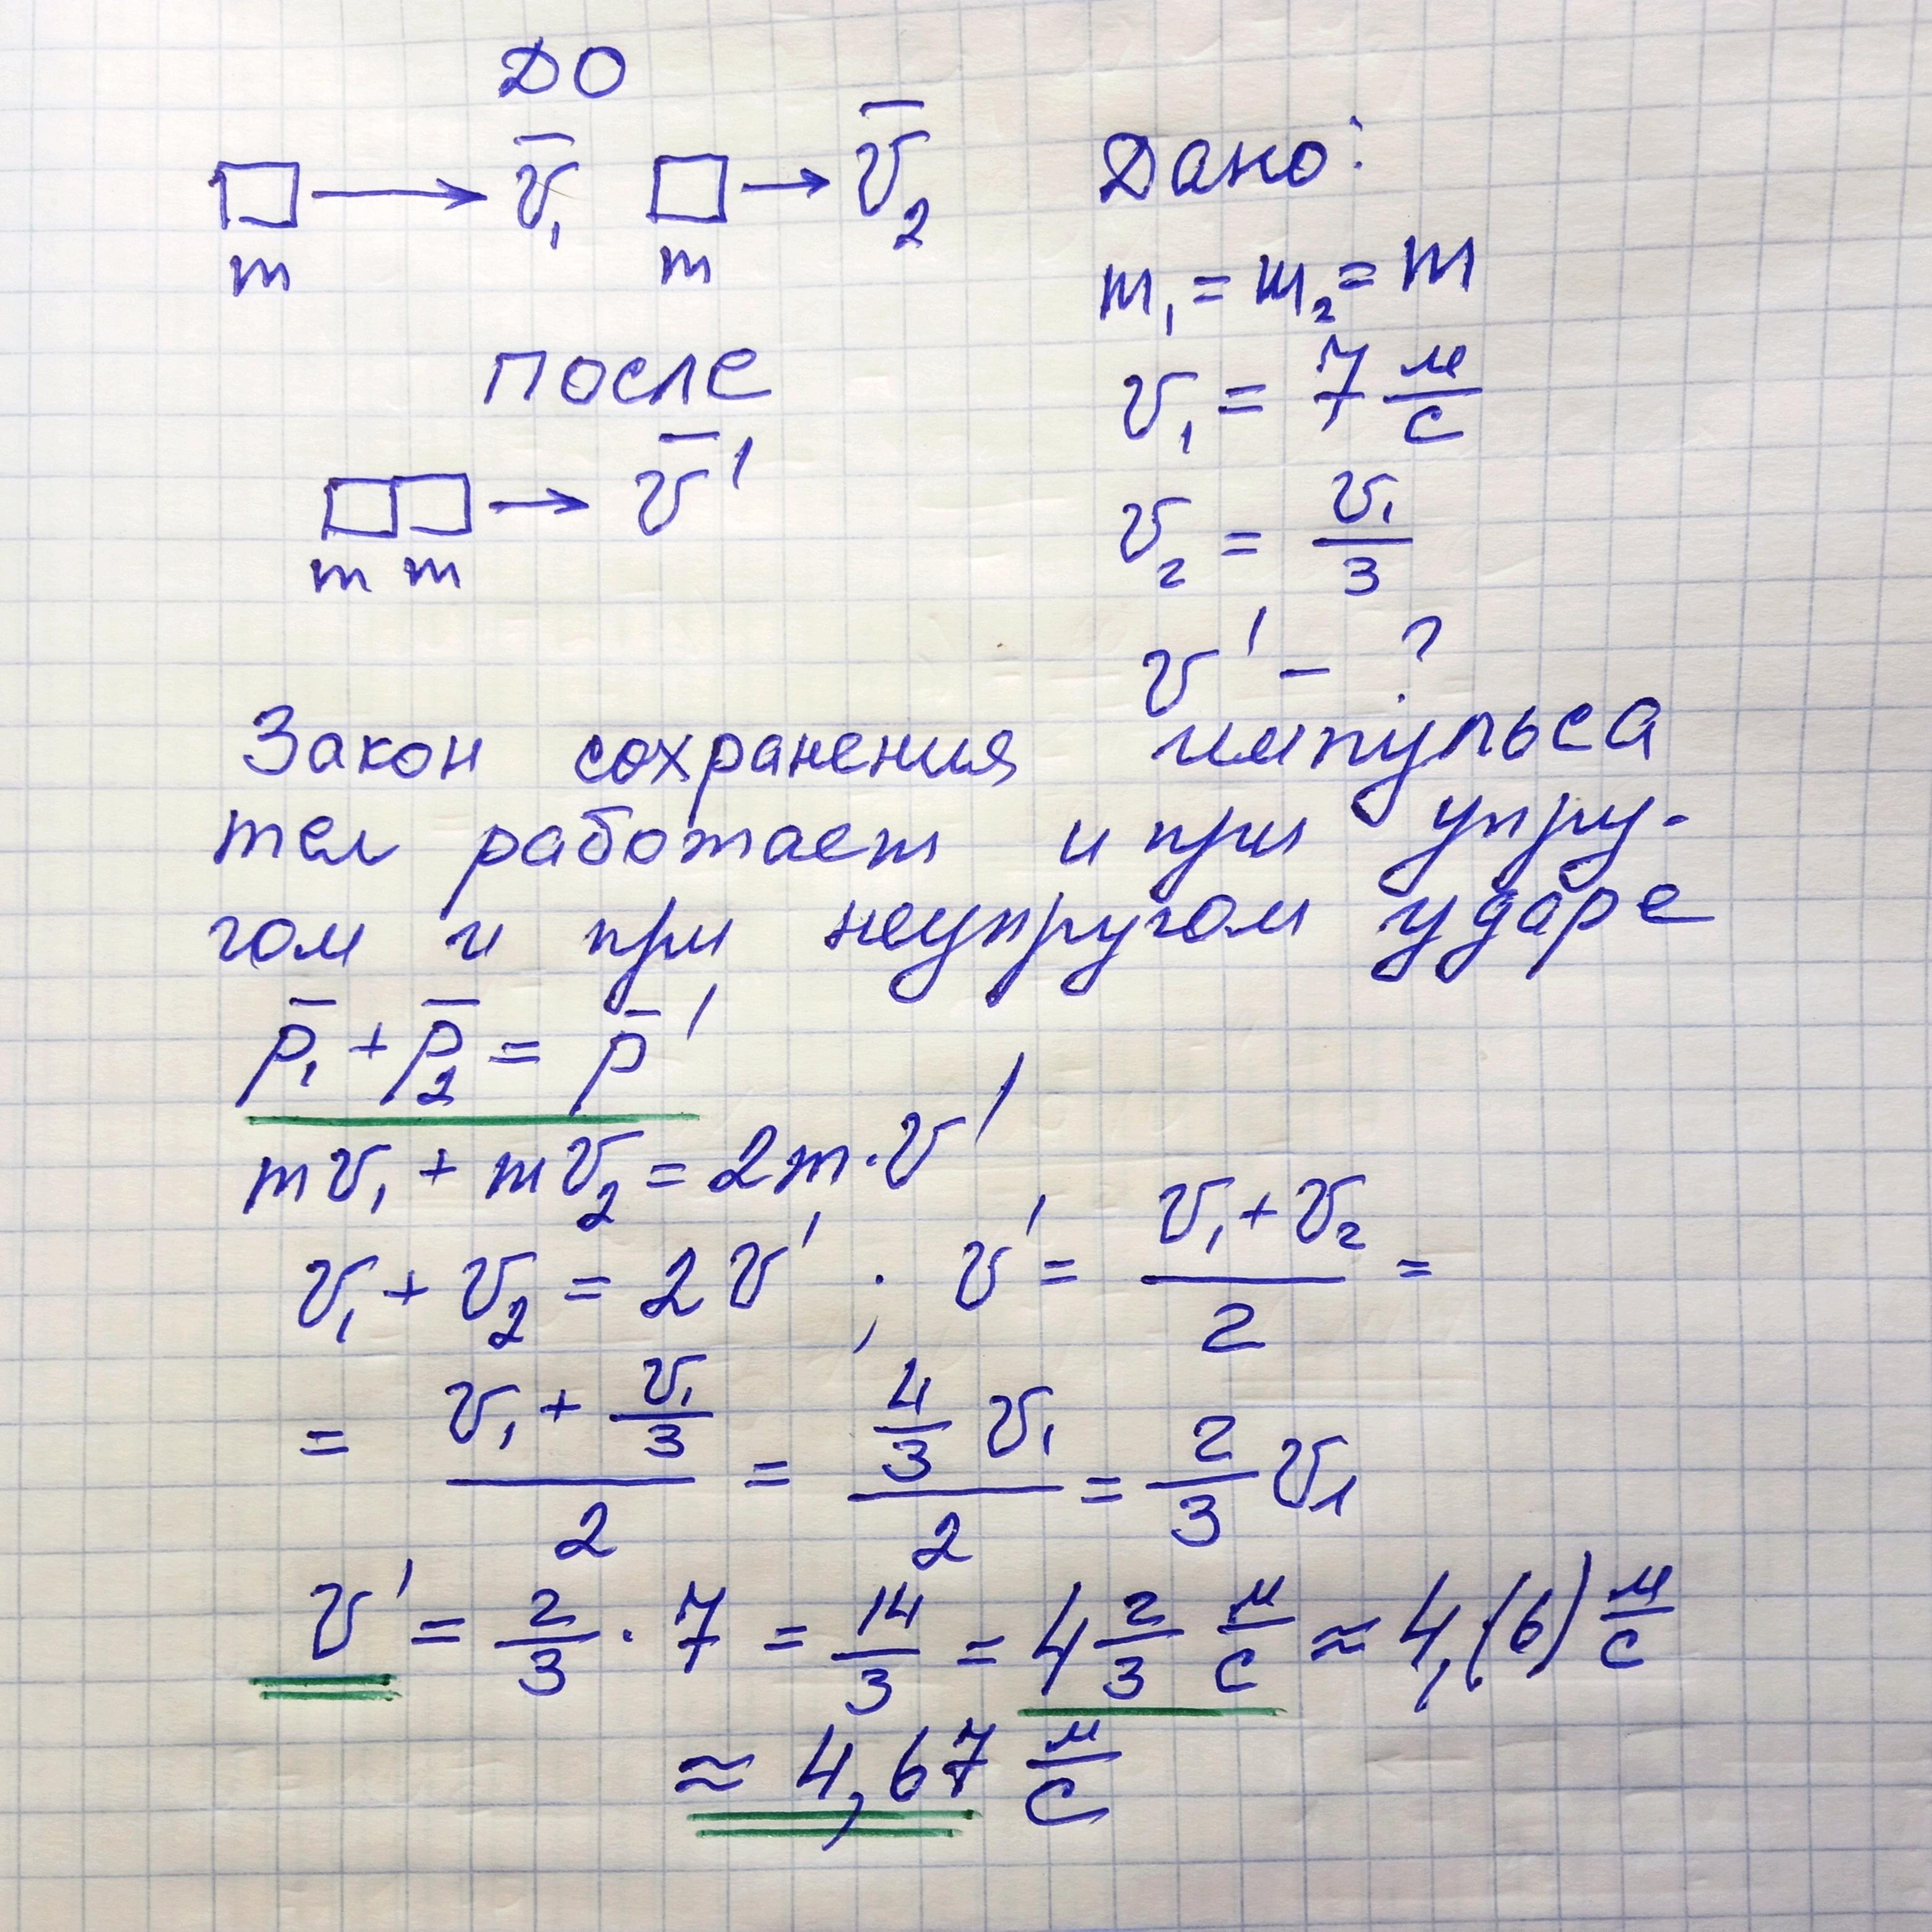 ДО
m v̄₁ m v̄₂
после
m m v̄'
Дано:
m₁ = m₂ = m
v₁ = 7 м/с
v₂ = v₁/3
v' - ?
Закон сохранения импульса
тел работает и при упру-
гом и при неупругом ударе
p̄₁ + p̄₂ = p̄'
mv₁ + mv₂ = 2m·v'
v₁ + v₂ = 2v' ; v' = (v₁ + v₂)/2 =
= (v₁ + v₁/3)/2 = (4/3 v₁)/2 = 2/3 v₁
v' = 2/3 · 7 = 14/3 = 4 2/3 м/с ≈ 4,(6) м/с
≈ 4,67 м/с